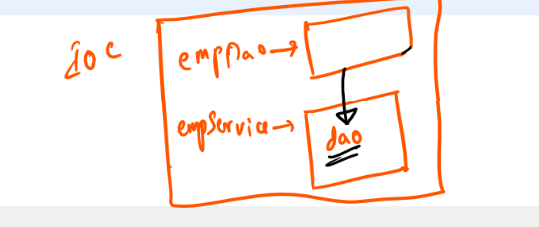 ioc
empDao
empService
dao